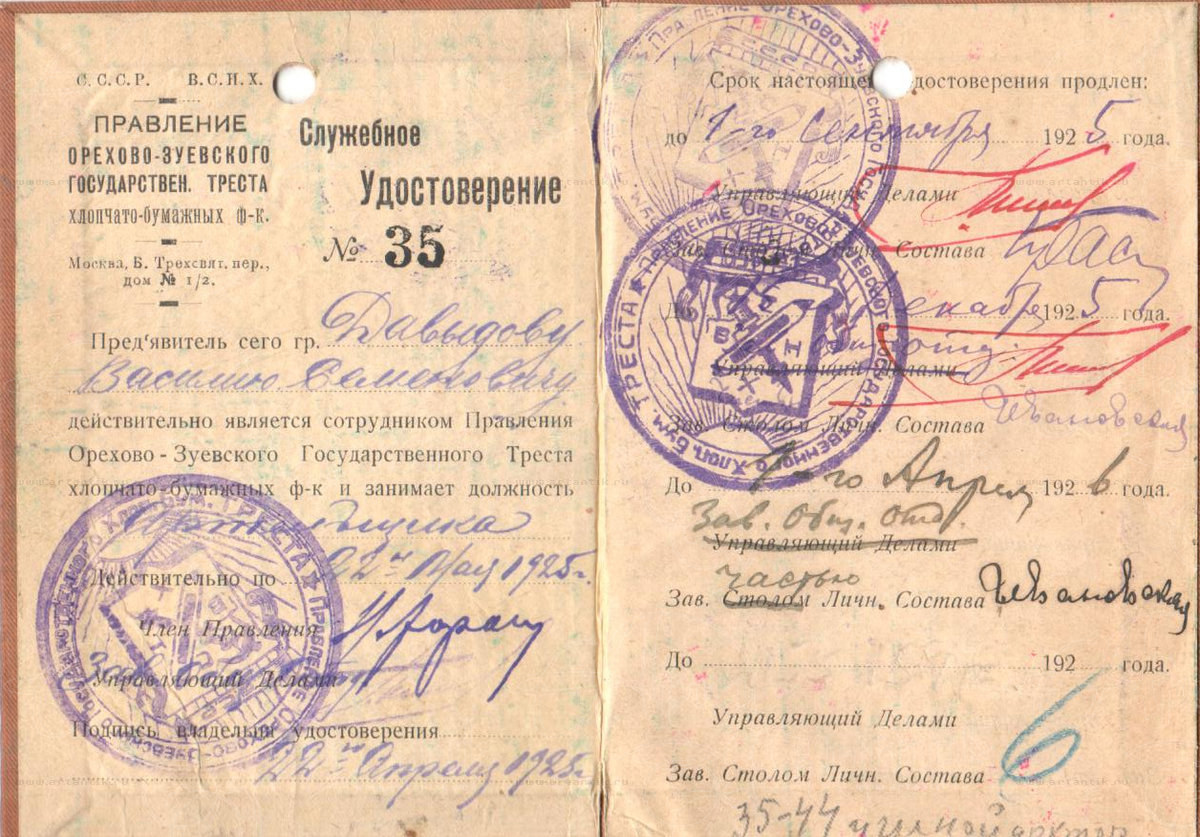 С.С.С.Р. В.С.Н.Х.
ПРАВЛЕНИЕ
ОРЕХОВО-ЗУЕВСКОГО
ГОСУДАРСТВЕН. ТРЕСТА
ХЛОПЧАТО-БУМАЖНЫХ Ф-К.
Москва, Б. Трехсвят. пер.,
дом № 1/2.
Служебное
Удостоверение
№ 35
Пред'явитель сего гр. Давыдову
Василию Семеновичу
действительно является сотрудником Правления
Орехово-Зуевского Государственного Треста
хлопчато-бумажных ф-к и занимает должность
Артельщика
Действительно по 22 Мая 1925 г.
Член Правления
Зав.
Управляющий Делами
Подпись владельц удостоверения
22 Апреля 1925 г.
Срок настоящег удостоверения продлен:
до 1-го Сентября 1925 года.
Управляющий Делами
Зав. Столом Личн. Состава
До Декабр 1925 года.
Управляющий Делами
Зав. Столом Личн. Состава Ивановская
До 1-го Апреля 1926 года.
Зав. Общ. отд.
Управляющий Делами
частью
Зав. Столом Личн. Состава Ивановская
До 192 года.
Управляющий Делами
6
Зав. Столом Личн. Состава
35-44
ПРАВЛЕНИЕ ОРЕХОВО-ЗУЕВСКОГО ГОСУДАРСТВЕННОГО ХЛОП. БУМ. ТРЕСТА